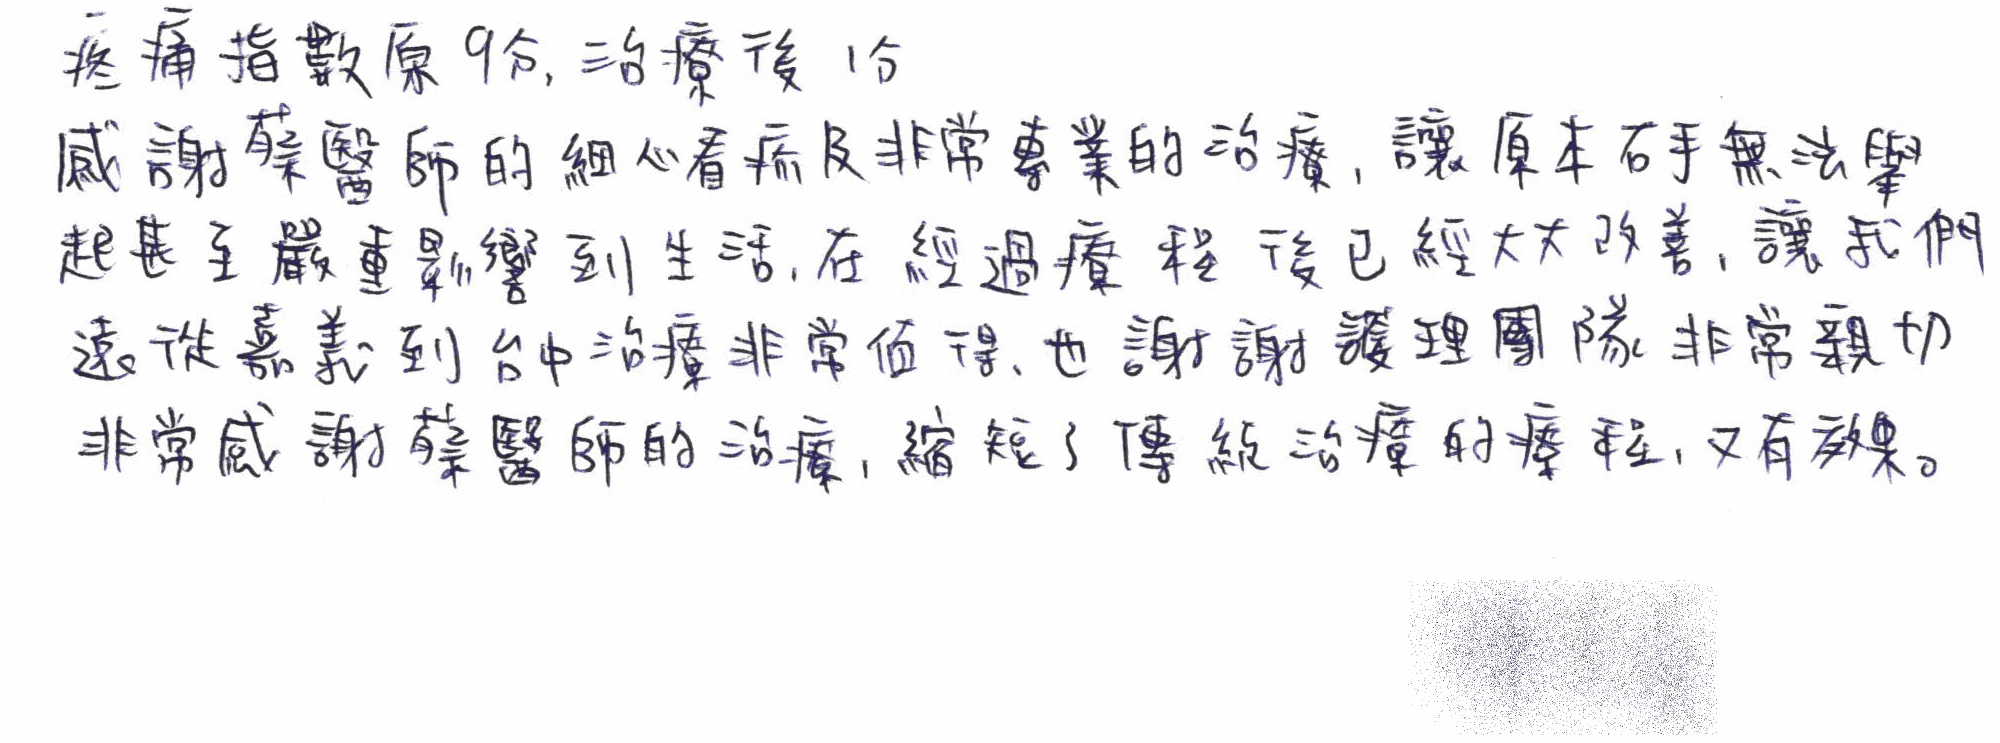 疼痛指數原9分,治療後1分
感謝蔡醫師的細心看病及非常專業的治療,讓原本右手無法舉
起甚至嚴重影響到生活,在經過療程後已經大大改善,讓我們
遠從嘉義到台中治療非常值得、也謝謝護理團隊非常親切
非常感謝蔡醫師的治療,縮短了傳統治療的療程,又有效果。